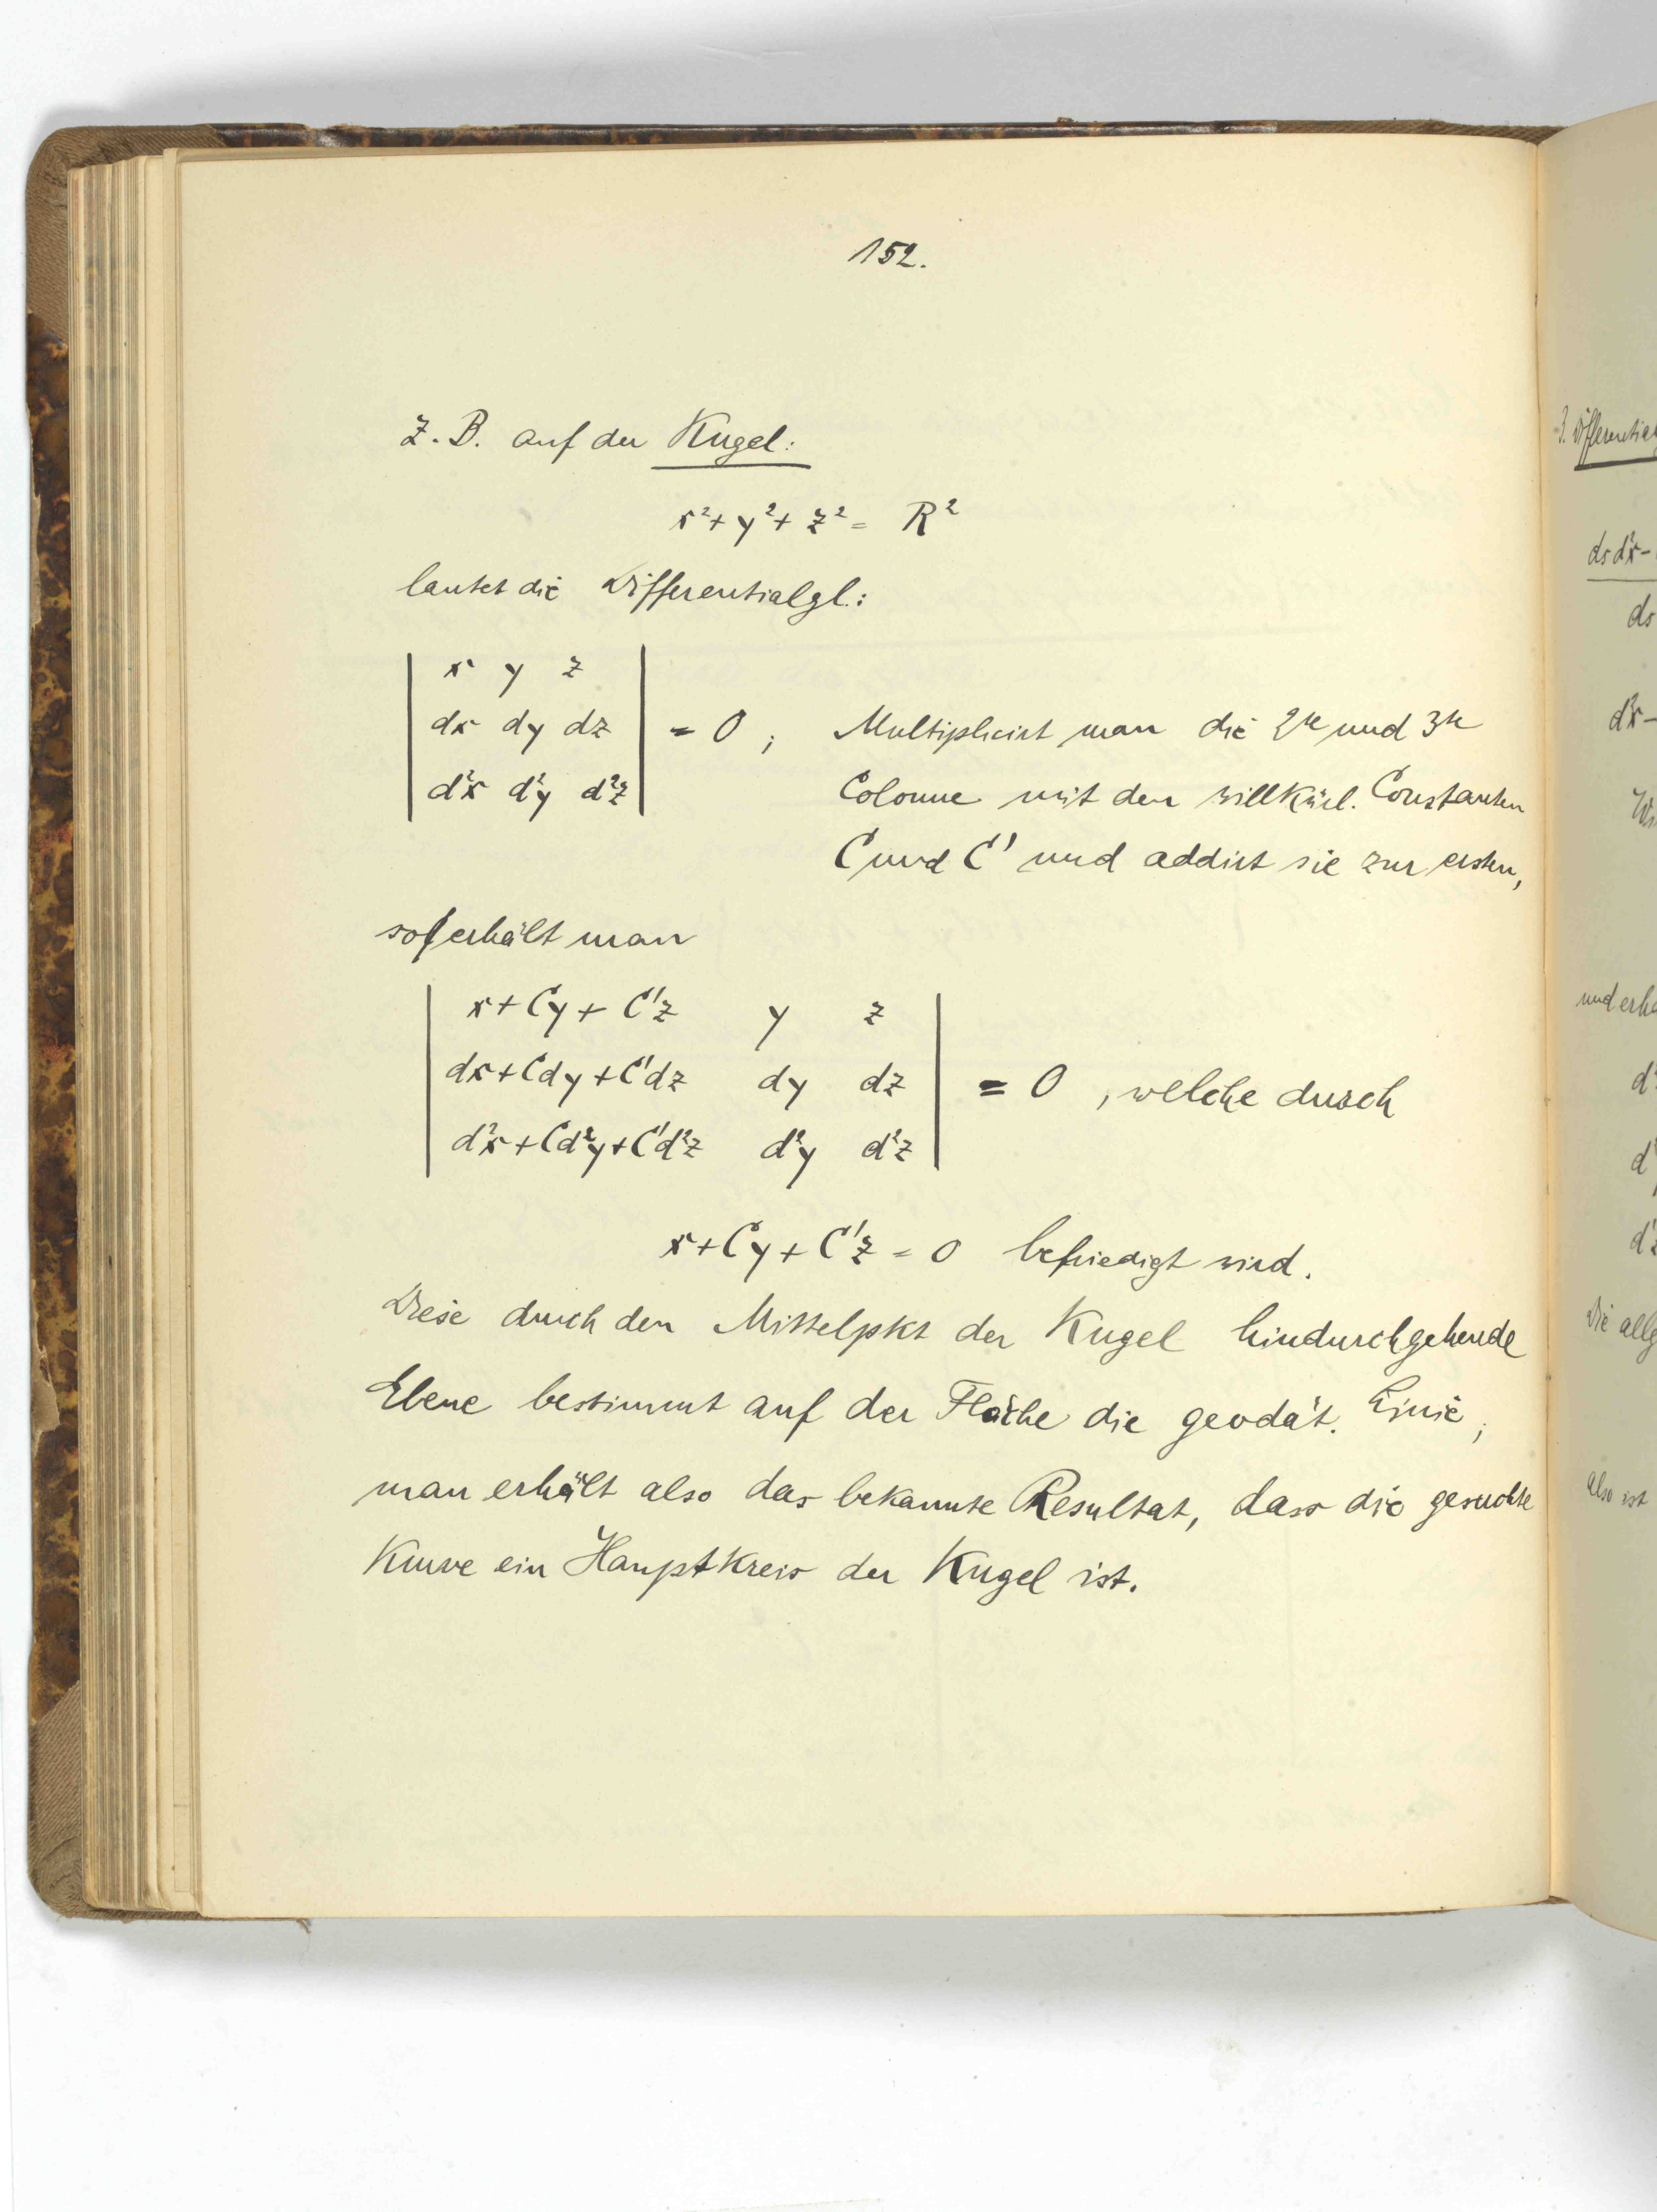 152.
Z. B. auf der Kugel:
x²+y²+z² = R²
lautet die Differentialgl.:
| x y z |
| dx dy dz | = 0 ; Multiplicirt man die 2te und 3te
| d²x d²y d²z | Colonne mit den willkürl. Constanten
C und C' und addirt sie zur ersten,
so erhält man
| x+Cy+C'z y z |
| dx+Cdy+C'dz dy dz | = 0 , welche durch
| d²x+Cd²y+C'd²z d²y d²z |
x+Cy+C'z = 0 befriedigt wird.
Diese durch den Mittelpkt der Kugel hindurchgehende
Ebene bestimmt auf der Fläche die geodät. Linie,
man erhält also das bekannte Resultat, dass die gesuchte
Kurve ein Hauptkreis der Kugel ist.
3. Differential
dsd²x-
ds
d²x-
und erh
Die allg
Also ist